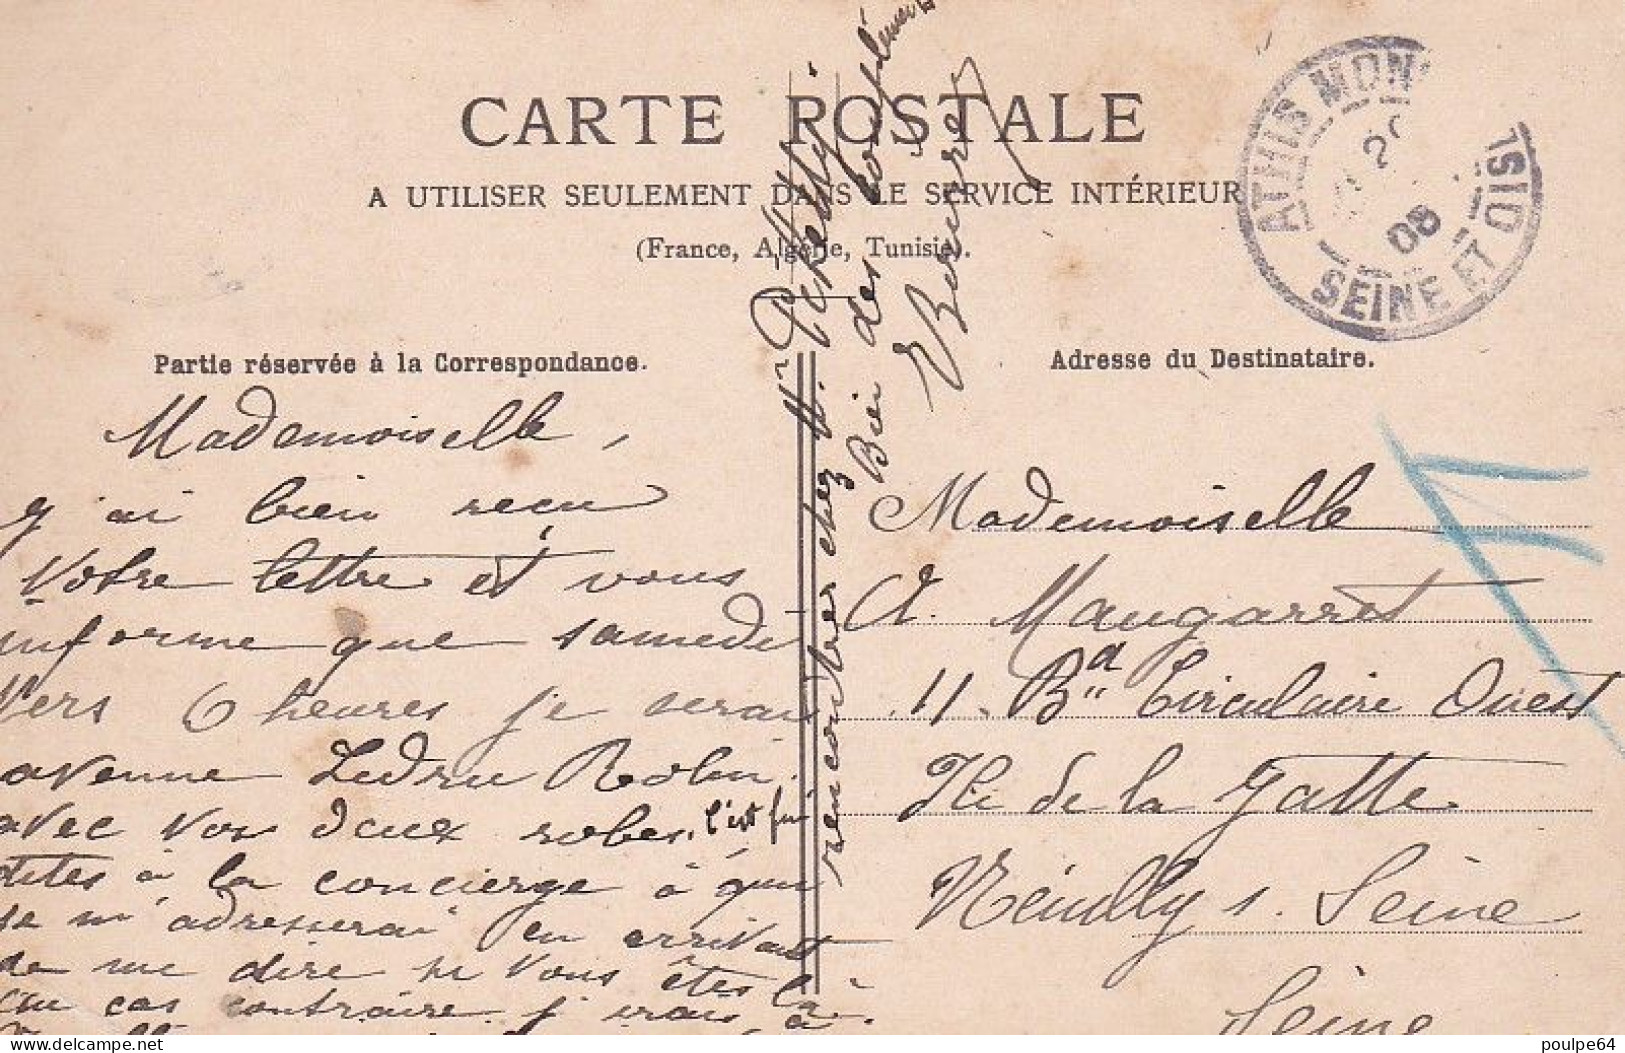 CARTE POSTALE
A UTILISER SEULEMENT DANS LE SERVICE INTÉRIEUR
(France, Algérie, Tunisie).
ATHIS MON
SEINE ET OISE
20
08
Partie réservée à la Correspondance.
Mademoiselle,
j'ai bien reçu
votre lettre et vous
informe que samedi
vers 6 heures je serai
avenue Ledru Rolin
avec vos deux robes. c'est
dites à la concierge à qui
je m'adresserai en arrivant
de me dire si vous êtes là
au cas contraire j'irais à
rencontrer chez Mr.
Bien des compliments
Adresse du Destinataire.
Mademoiselle
A. Maugarret
11. Bd Circulaire Ouest
Ile de la Jatte
Neuilly s. Seine
Seine
delcampe.net
poulpe64